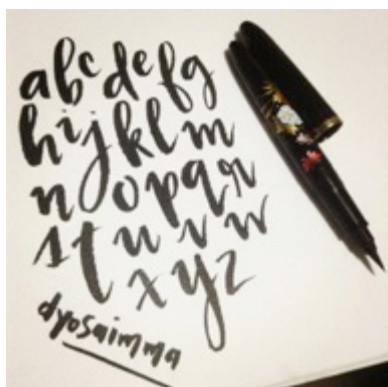 abcdefg
hijklm
nopqr
stuvw
xyz
dyosaimma